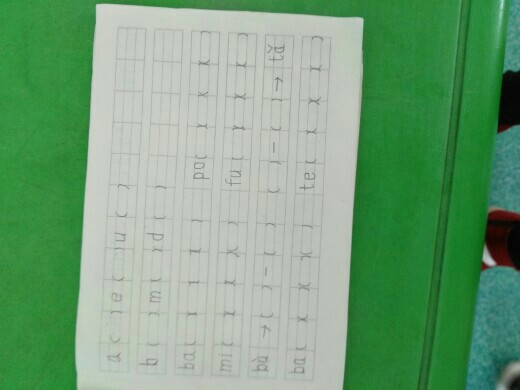 a ( ) e ( ) u ( )
b ( ) m ( ) d ( )
ba ( x x x ) po ( x x x )
mi ( x x x ) fu ( x x x )
bù → ( ) - ( ) ( ) - ( ) → tǎ
ba ( x x x ) te ( x x x )